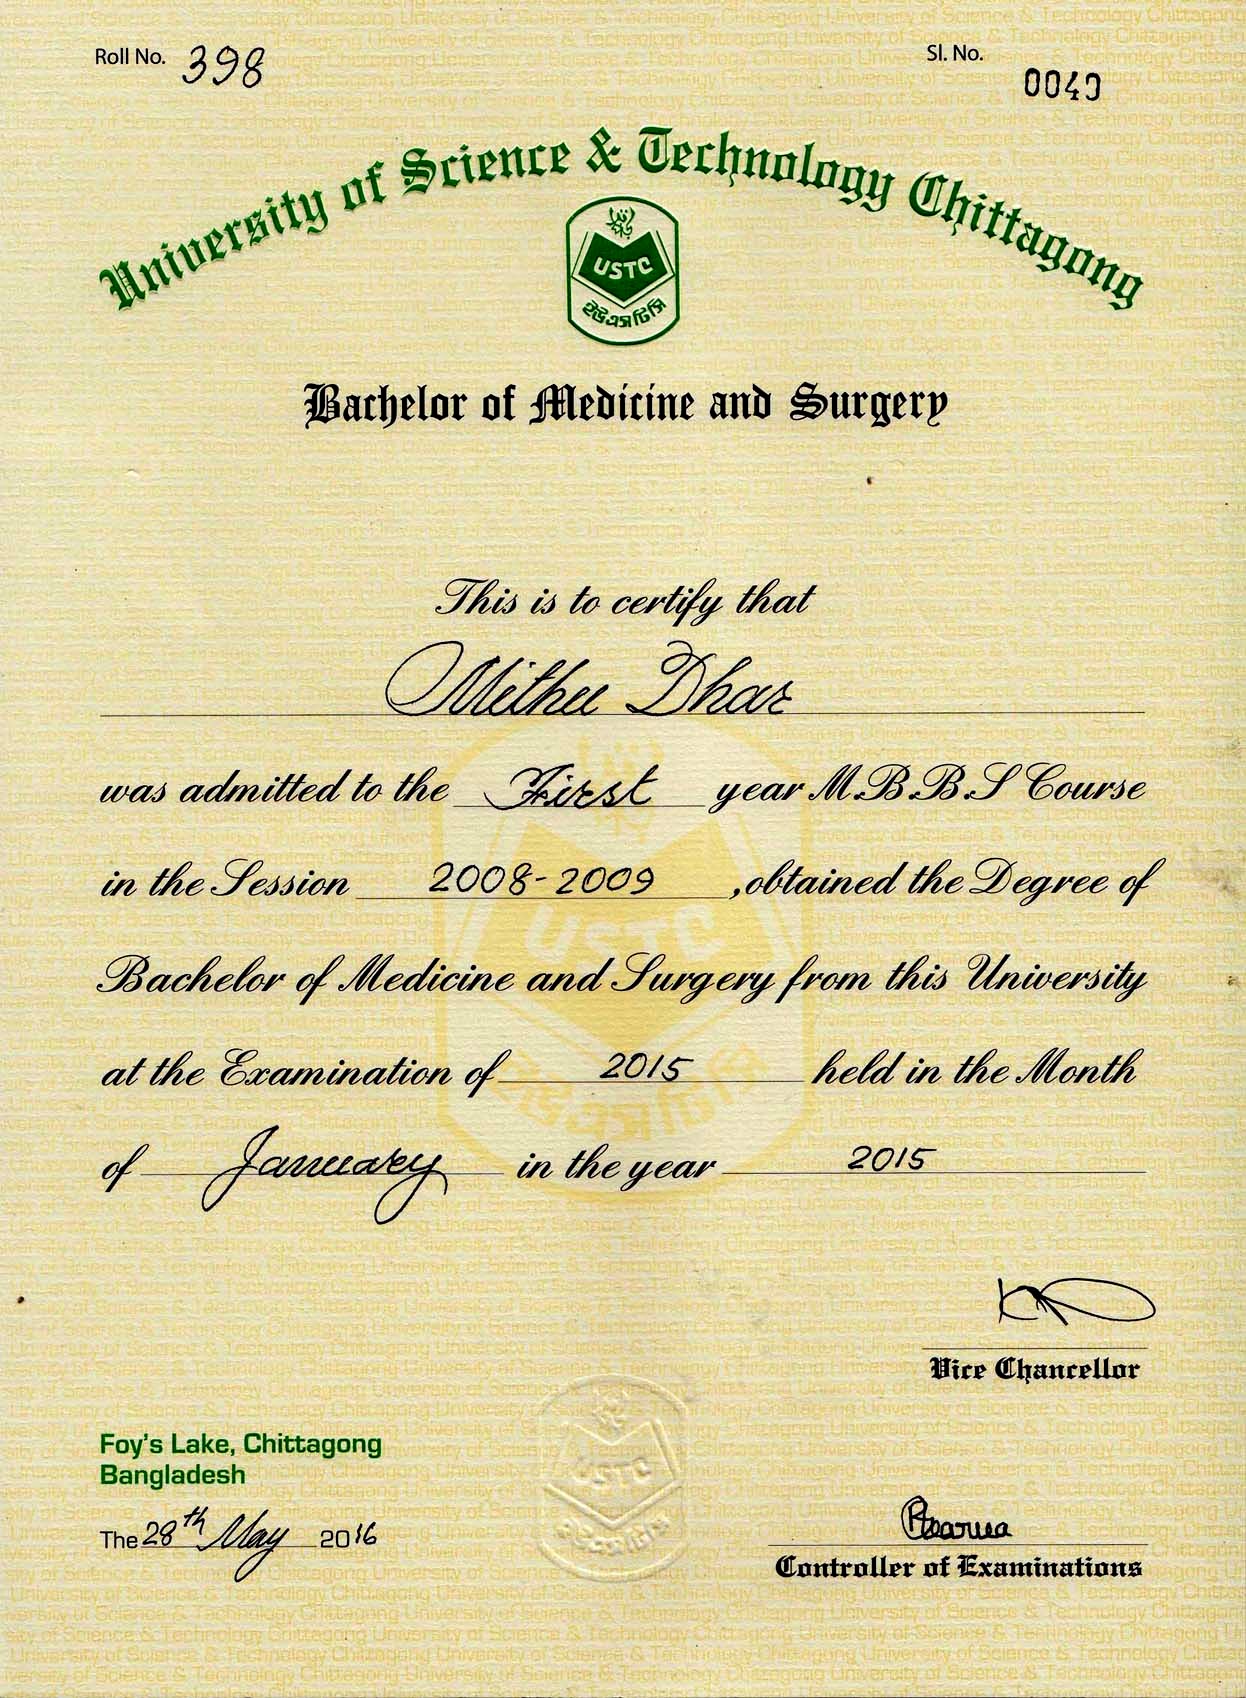 Roll No. 398
Sl. No.
University of Science & Technology Chittagong
USTC
ইউএসটিসি
Bachelor of Medicine and Surgery
This is to certify that
Mithu Dhar
was admitted to the First year M.B.B.S Course
in the Session 2008-2009 ,obtained the Degree of
Bachelor of Medicine and Surgery from this University
at the Examination of 2015 held in the Month
of January in the year 2015
Vice Chancellor
Foy's Lake, Chittagong
Bangladesh
The 28th May 2016
USTC
Controller of Examinations